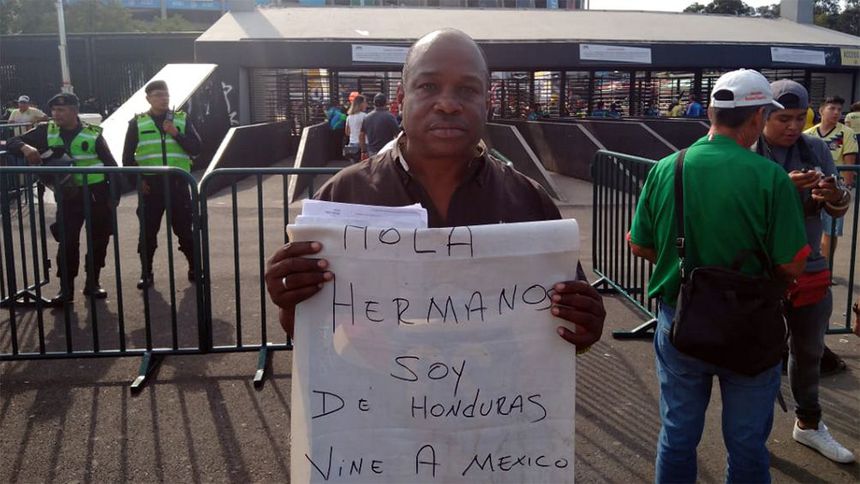 HOLA
HERMANOS
SOY
DE HONDURAS
VINE A MEXICO